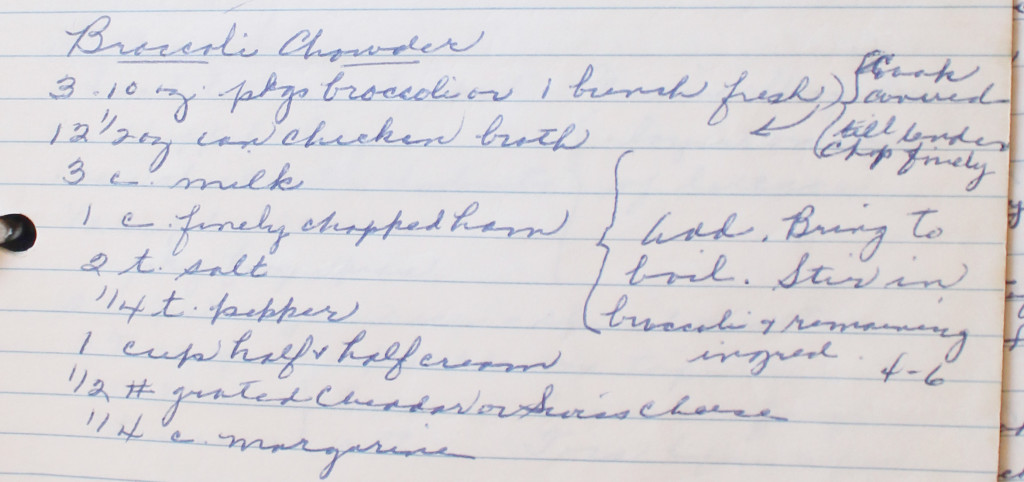 Broccoli Chowder
3 10 oz. pkgs broccoli or 1 bunch fresh)
Cook
covered
till tender
Chop finely
12 1/2 oz can chicken broth
3 c. milk
1 c. finely chopped ham
2 t. salt
1/4 t. pepper
Add. Bring to
boil. Stir in
broccoli & remaining
ingred.
4-6
1 cup half & half cream
1/2 # grated Cheddar or Swiss Cheese
1/4 c. margarine